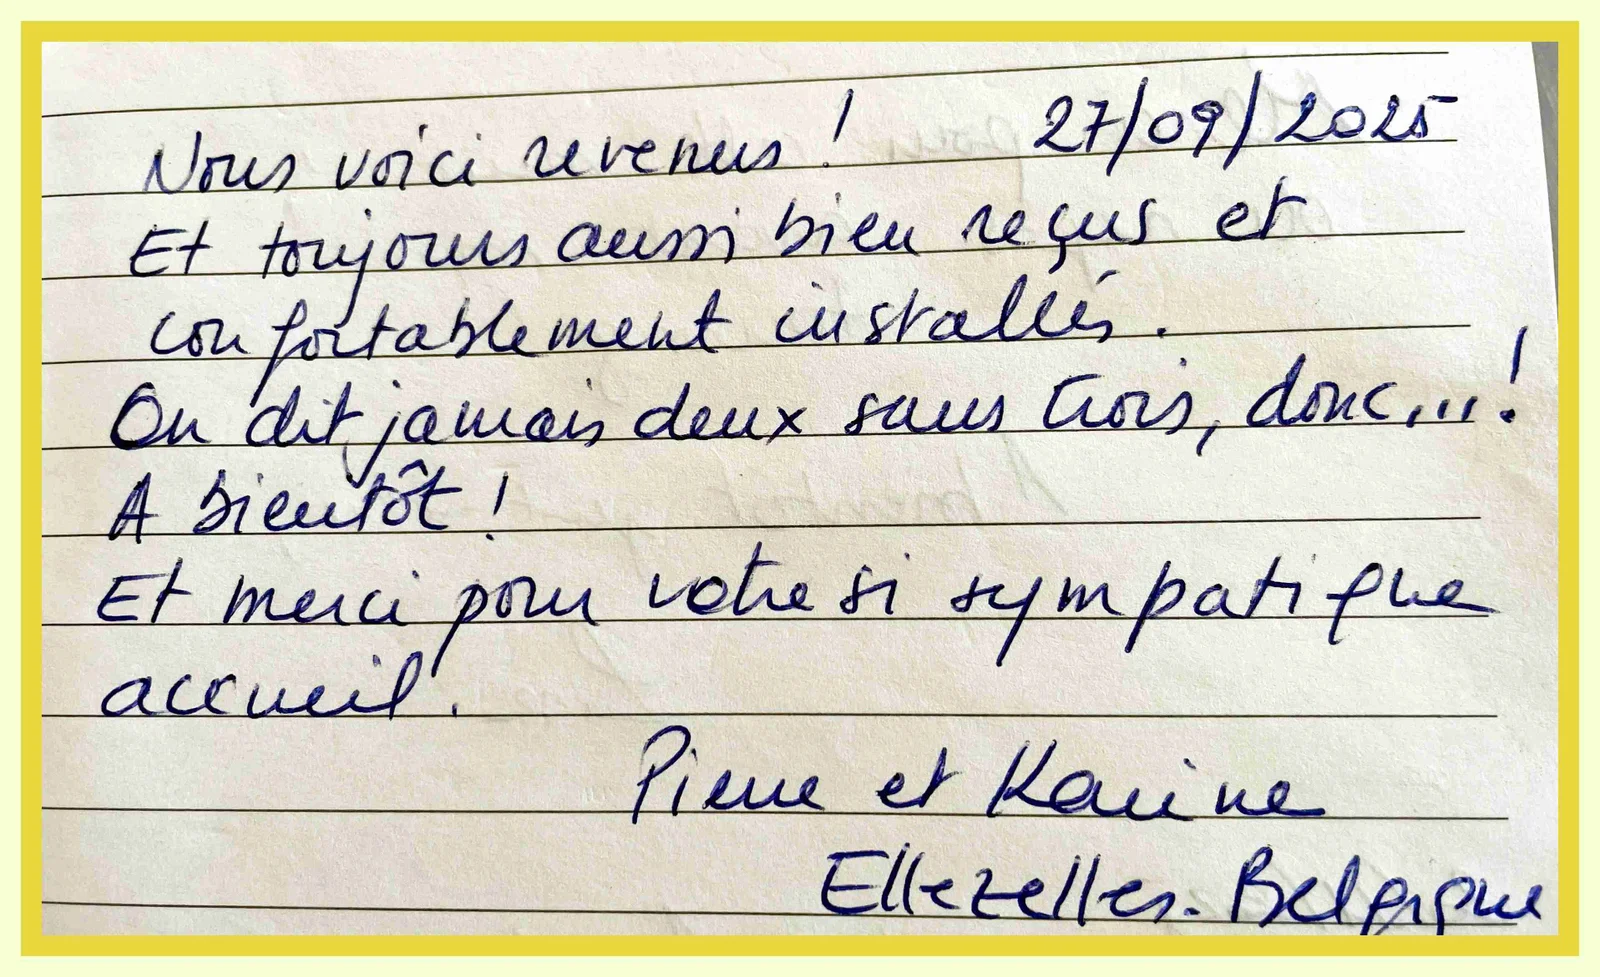 Nous voici revenus ! 27/09/2025
Et toujours aussi bien reçus et
confortablement installés.
On dit jamais deux sans trois, donc...!
A bientôt !
Et merci pour votre si sympatique
accueil.
Pierre et Karine
Ellezelles. Belgique